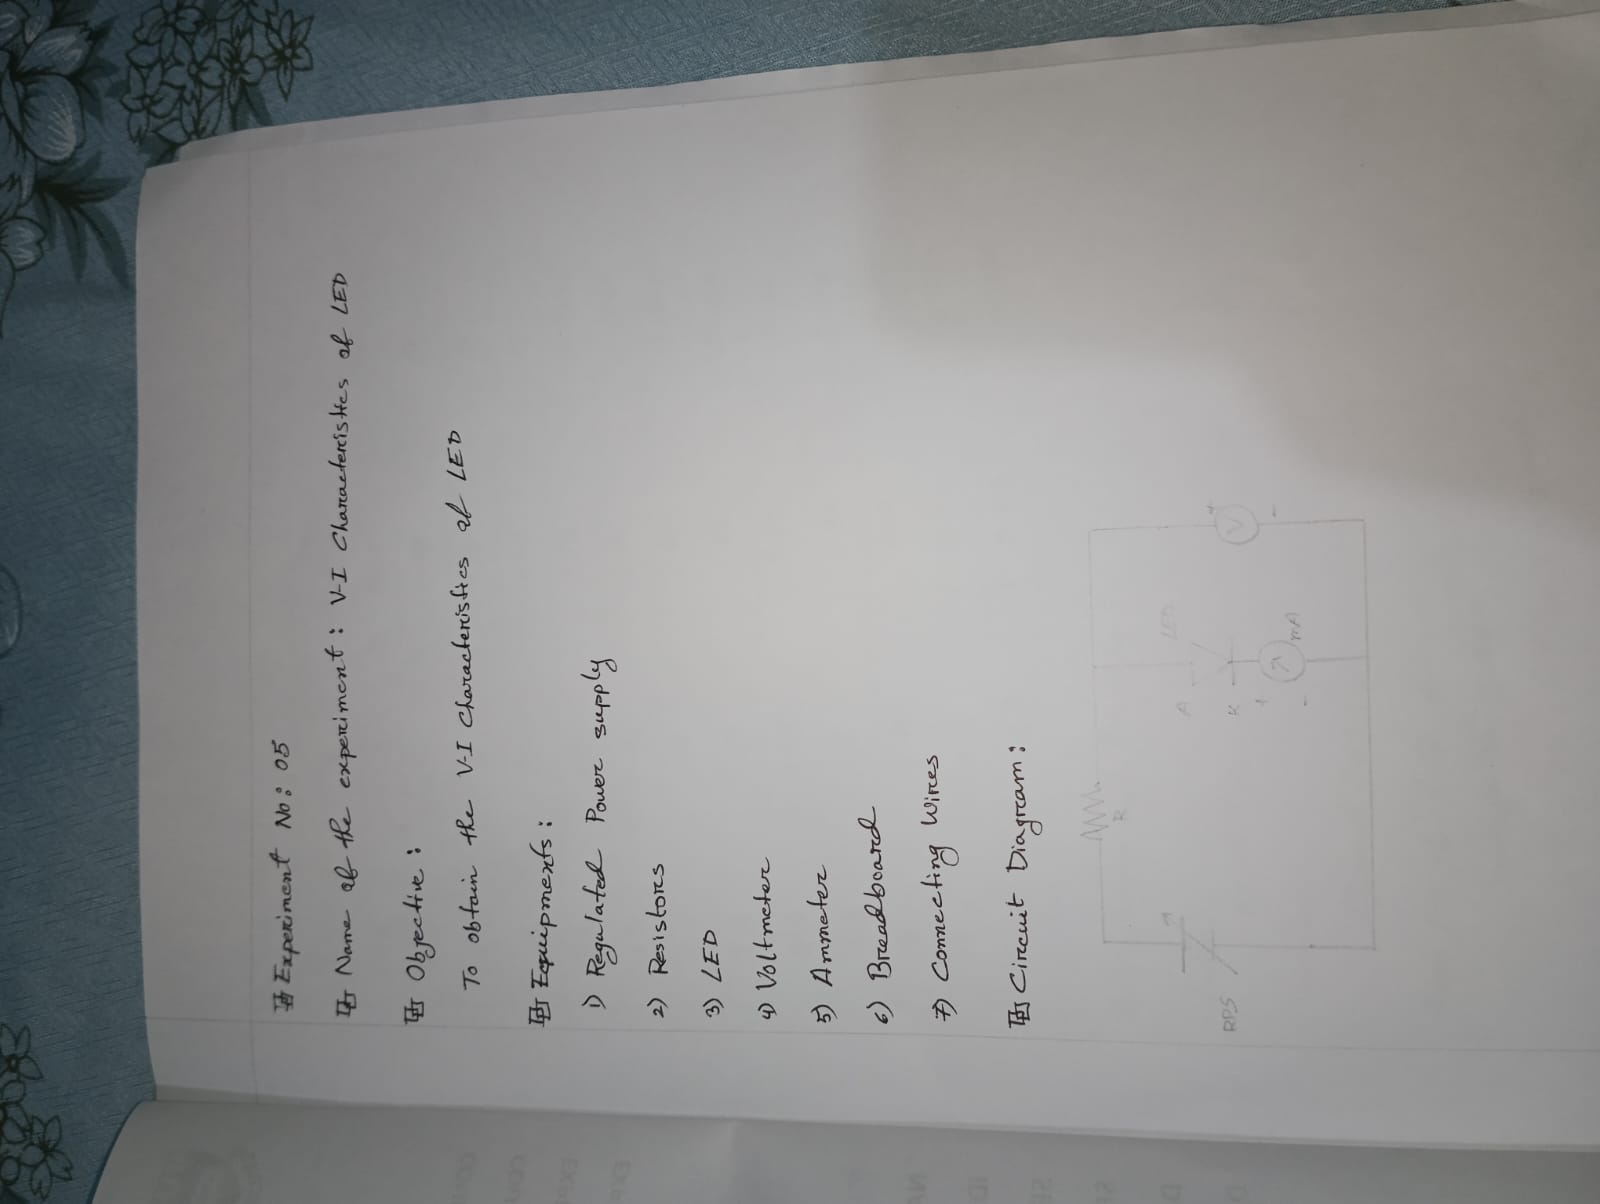 Experiment No: 05
Name of the experiment: V-I Characteristics of LED
Objective:
To obtain the V-I Characteristics of LED
Equipments:
1) Regulated Power supply
2) Resistors
3) LED
4) Voltmeter
5) Ammeter
6) Breadboard
7) Connecting Wires
Circuit Diagram:
R
A
LED
K
+
-
mA
V
+
-
RPS